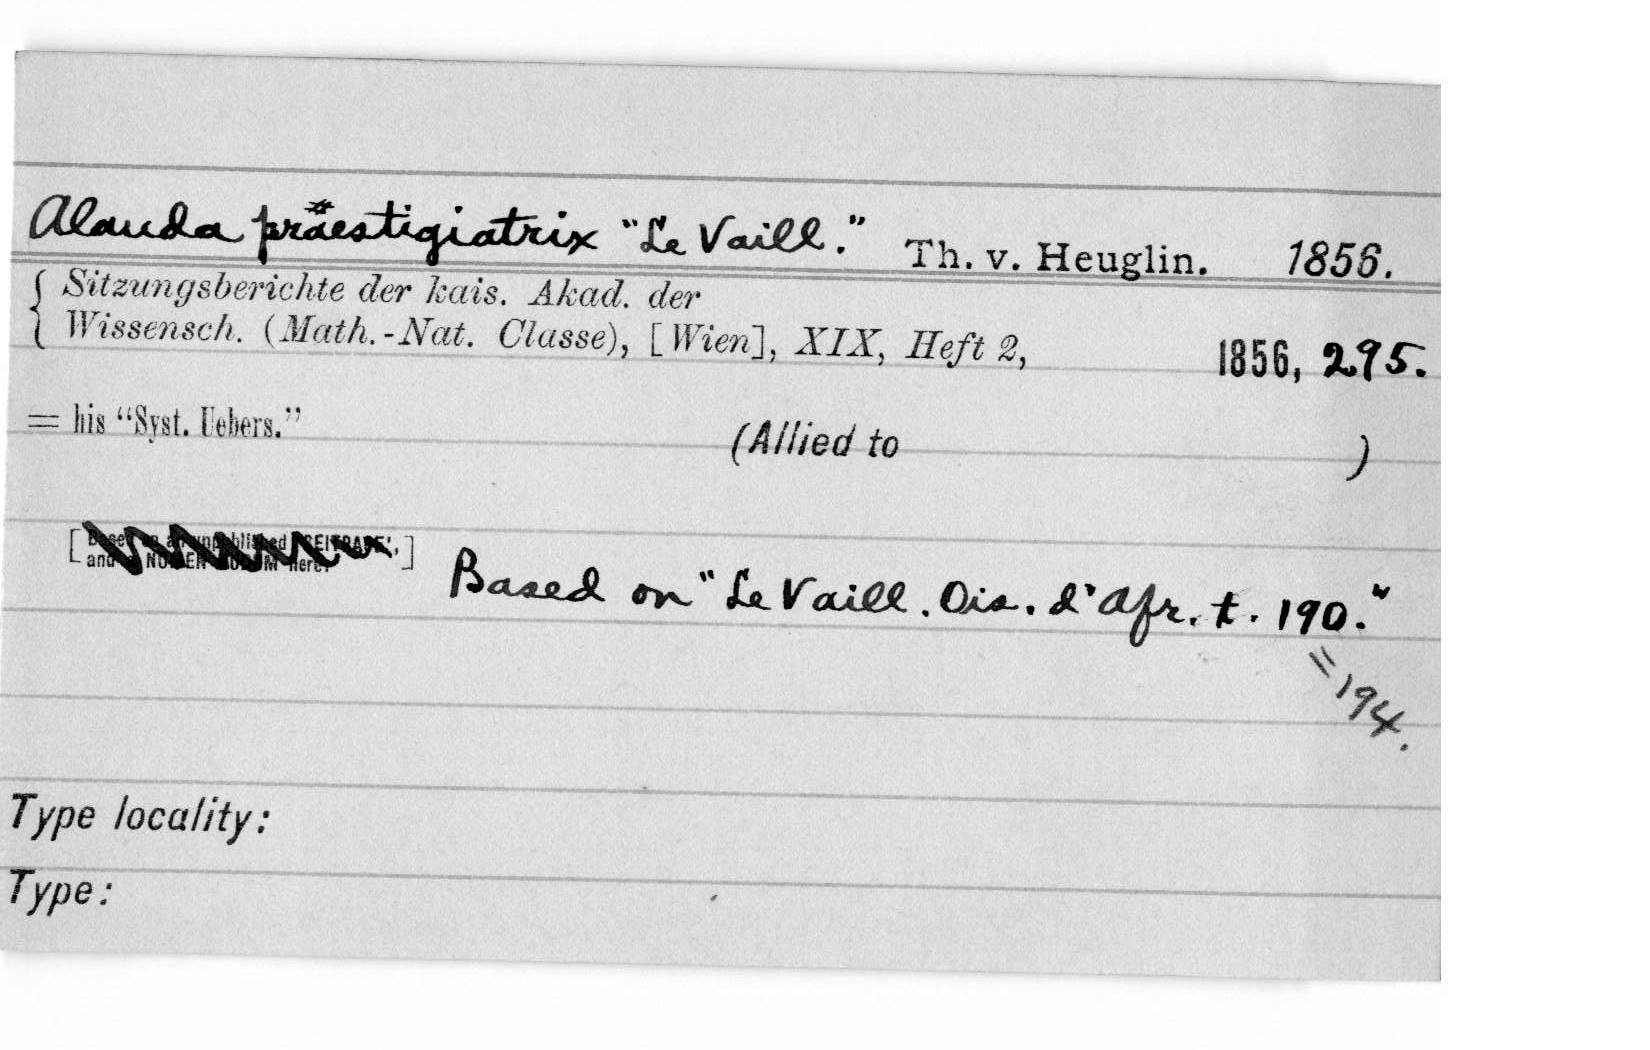 Alauda präestigiatrix "Le Vaill." Th. v. Heuglin. 1856.
Sitzungsberichte der kais. Akad. der
Wissensch. (Math.-Nat. Classe), [Wien], XIX, Heft 2, 1856, 295.
= his "Syst. Uebers."
(Allied to )
[Based on an unpublished 'BEITRAEGE',
and a NOMEN NUDUM here.]
Based on "Le Vaill. Ois. d'Afr. t. 190."
= 194.
Type locality:
Type: